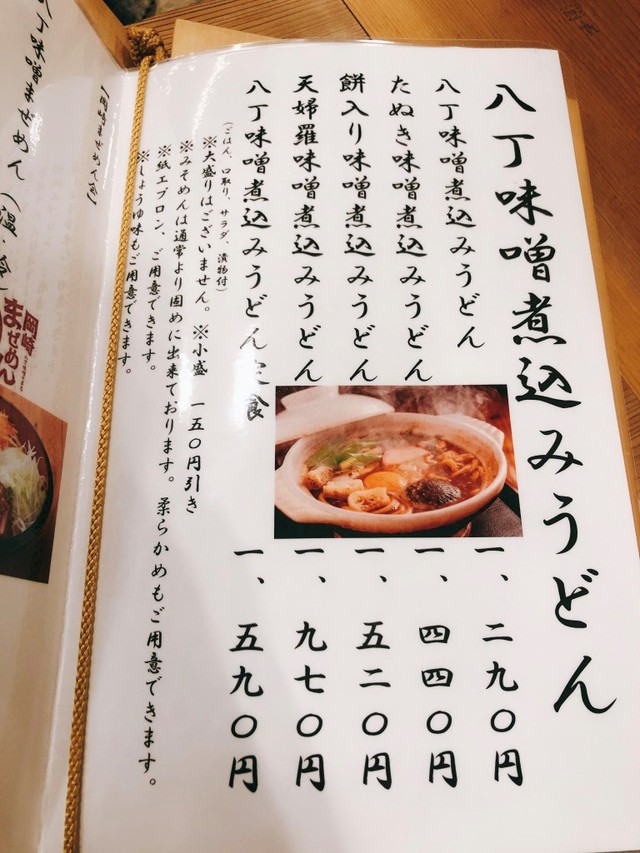 八丁味噌煮込みうどん
八丁味噌煮込みうどん 一、二九〇円
たぬき味噌煮込みうどん 一、四四〇円
餅入り味噌煮込みうどん 一、五二〇円
天婦羅味噌煮込みうどん 一、九七〇円
八丁味噌煮込みうどん定食 一、五九〇円
(ごはん、口取り、サラダ、漬物付)
※大盛りはございません。※小盛 一五〇円引き
※みそめんは通常より固めに出来ております。柔らかめもご用意できます。
※紙エプロン、ご用意できます。
※しょうゆ味もご用意できます。
【岡崎まぜめん会】
八丁味噌まぜめん(温・冷)
岡崎
まぜめん